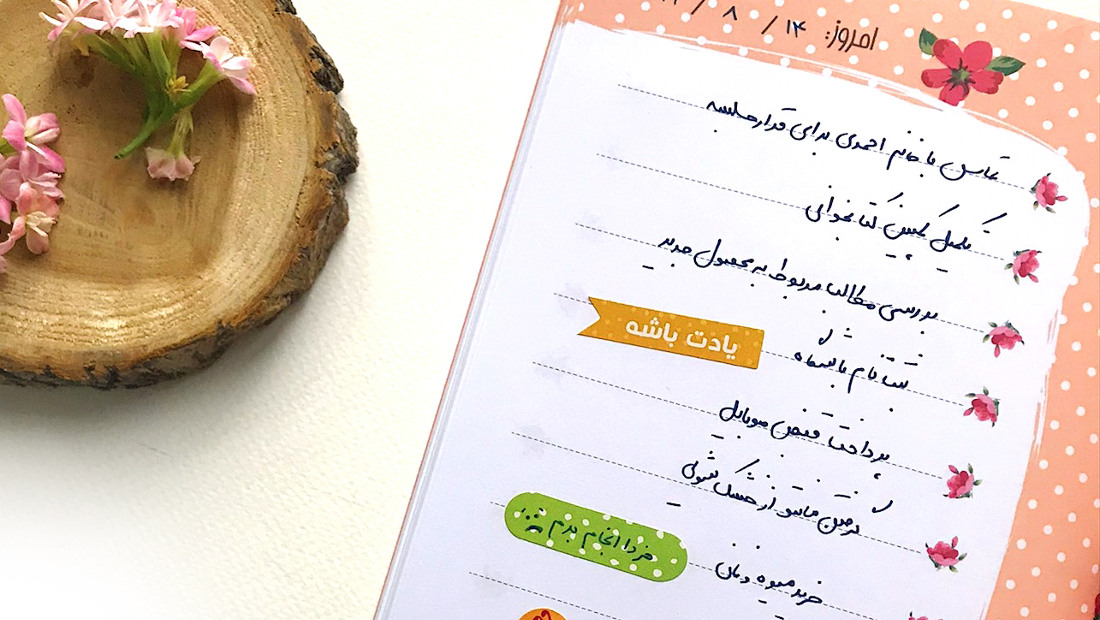 امروز: ۱۴ / ۸ /
تماس با خانم احمدی برای قرار جلسه
تکمیل کمپین کتابخوانی
بررسی مطالب مربوط به محصول جدید
ثبت نام باشگاه
یادت باشه
پرداخت قبض موبایل
گرفتن مانتو از خشک شوئی
خرید میوه و نان
فردا انجام بدم